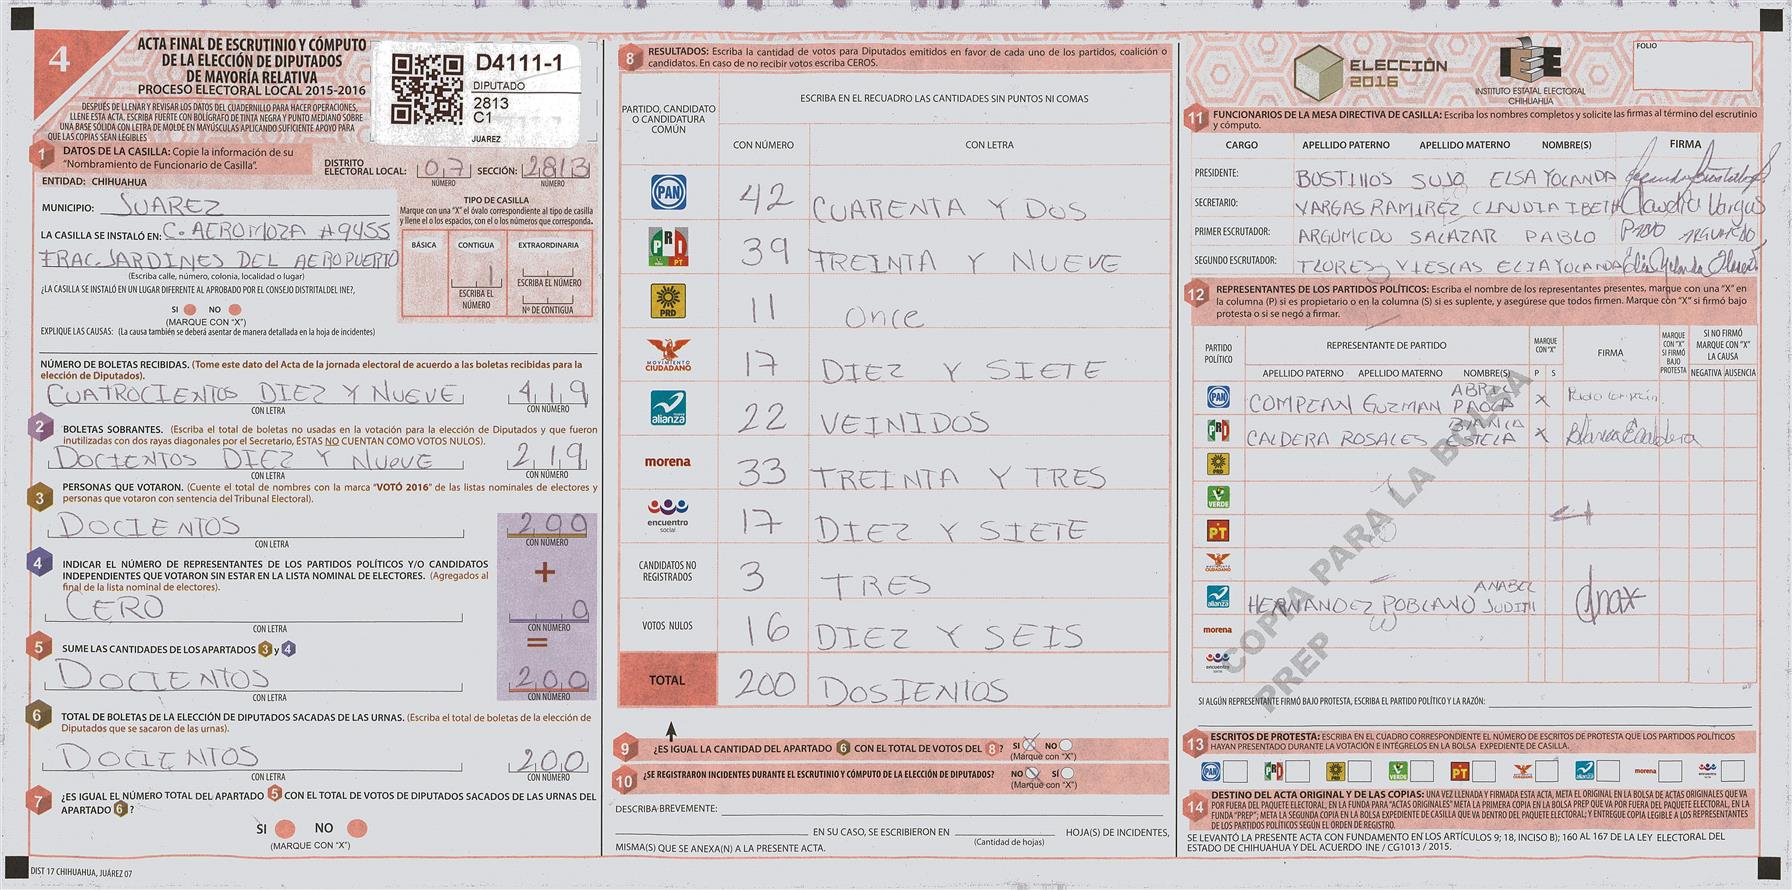 4
ACTA FINAL DE ESCRUTINIO Y CÓMPUTO
DE LA ELECCIÓN DE DIPUTADOS
DE MAYORÍA RELATIVA
PROCESO ELECTORAL LOCAL 2015-2016
DESPUÉS DE LLENAR Y REVISAR LOS DATOS DEL CUADERNILLO PARA HACER OPERACIONES,
LLENE ESTA ACTA. ESCRIBA FUERTE CON BOLÍGRAFO DE TINTA NEGRA Y PUNTO MEDIANO SOBRE
UNA BASE SÓLIDA CON LETRA DE MOLDE EN MAYÚSCULAS APLICANDO SUFICIENTE APOYO PARA
QUE LAS COPIAS SEAN LEGIBLES
D4111-1
DIPUTADO
2813
C1
JUAREZ
1 DATOS DE LA CASILLA: Copie la información de su
"Nombramiento de Funcionario de Casilla".
DISTRITO
ELECTORAL LOCAL: 07 SECCIÓN: 2813
NÚMERO NÚMERO
ENTIDAD: CHIHUAHUA
MUNICIPIO: JUAREZ
LA CASILLA SE INSTALÓ EN: C. AEROMOZA #9455
FRAC. JARDINES DEL AEROPUERTO
(Escriba calle, número, colonia, localidad o lugar)
¿LA CASILLA SE INSTALÓ EN UN LUGAR DIFERENTE AL APROBADO POR EL CONSEJO DISTRITAL DEL INE?,
SI NO
(MARQUE CON "X")
EXPLIQUE LAS CAUSAS: (La causa también se deberá asentar de manera detallada en la hoja de incidentes)
TIPO DE CASILLA
Marque con una "X" el óvalo correspondiente al tipo de casilla
y llene el o los espacios, con el o los números que corresponda.
BÁSICA CONTIGUA EXTRAORDINARIA
1
ESCRIBA EL NÚMERO
ESCRIBA EL
NÚMERO
Nº DE CONTIGUA
NÚMERO DE BOLETAS RECIBIDAS. (Tome este dato del Acta de la jornada electoral de acuerdo a las boletas recibidas para la
elección de Diputados).
CUATROCIENTOS DIEZ Y NUEVE 419
CON LETRA CON NÚMERO
2 BOLETAS SOBRANTES. (Escriba el total de boletas no usadas en la votación para la elección de Diputados y que fueron
inutilizadas con dos rayas diagonales por el Secretario, ÉSTAS NO CUENTAN COMO VOTOS NULOS).
DOCIENTOS DIEZ Y NUEVE 219
CON LETRA CON NÚMERO
3 PERSONAS QUE VOTARON. (Cuente el total de nombres con la marca "VOTÓ 2016" de las listas nominales de electores y
personas que votaron con sentencia del Tribunal Electoral).
DOCIENTOS 200
CON LETRA CON NÚMERO
4 INDICAR EL NÚMERO DE REPRESENTANTES DE LOS PARTIDOS POLÍTICOS Y/O CANDIDATOS
INDEPENDIENTES QUE VOTARON SIN ESTAR EN LA LISTA NOMINAL DE ELECTORES. (Agregados al
final de la lista nominal de electores).
+
CERO 0
CON LETRA CON NÚMERO
=
5 SUME LAS CANTIDADES DE LOS APARTADOS 3 y 4
DOCIENTOS 200
CON LETRA CON NÚMERO
6 TOTAL DE BOLETAS DE LA ELECCIÓN DE DIPUTADOS SACADAS DE LAS URNAS. (Escriba el total de boletas de la elección de
Diputados que se sacaron de las urnas).
DOCIENTOS 200
CON LETRA CON NÚMERO
7 ¿ES IGUAL EL NÚMERO TOTAL DEL APARTADO 5 CON EL TOTAL DE VOTOS DE DIPUTADOS SACADOS DE LAS URNAS DEL
APARTADO 6?
SI NO
(MARQUE CON "X")
DIST 17 CHIHUAHUA, JUÁREZ 07
8 RESULTADOS: Escriba la cantidad de votos para Diputados emitidos en favor de cada uno de los partidos, coalición o
candidatos. En caso de no recibir votos escriba CEROS.
PARTIDO, CANDIDATO
O CANDIDATURA
COMÚN
ESCRIBA EN EL RECUADRO LAS CANTIDADES SIN PUNTOS NI COMAS
CON NÚMERO CON LETRA
PAN 42 CUARENTA Y DOS
PRI PT 39 TREINTA Y NUEVE
PRD 11 Once
MOVIMIENTO CIUDADANO 17 DIEZ Y SIETE
nueva alianza 22 VEINIDOS
morena 33 TREINTA Y TRES
encuentro social 17 DIEZ Y SIETE
CANDIDATOS NO REGISTRADOS 3 TRES
VOTOS NULOS 16 DIEZ Y SEIS
TOTAL 200 DOSIENTOS
9 ¿ES IGUAL LA CANTIDAD DEL APARTADO 6 CON EL TOTAL DE VOTOS DEL 8? SI X NO
(Marque con "X")
10 ¿SE REGISTRARON INCIDENTES DURANTE EL ESCRUTINIO Y CÓMPUTO DE LA ELECCIÓN DE DIPUTADOS? NO SÍ
(Marque con "X")
DESCRIBA BREVEMENTE:
EN SU CASO, SE ESCRIBIERON EN HOJA(S) DE INCIDENTES,
(Cantidad de hojas)
MISMA(S) QUE SE ANEXA(N) A LA PRESENTE ACTA.
ELECCIÓN
2016
IEE
INSTITUTO ESTATAL ELECTORAL
CHIHUAHUA
FOLIO
11 FUNCIONARIOS DE LA MESA DIRECTIVA DE CASILLA: Escriba los nombres completos y solicite las firmas al término del escrutinio
y cómputo.
CARGO APELLIDO PATERNO APELLIDO MATERNO NOMBRE(S) FIRMA
PRESIDENTE: BUSTILLOS SUJO ELSA YOLANDA
SECRETARIO: VARGAS RAMIREZ CLAUDIA IBETH Claudia Vargas
PRIMER ESCRUTADOR: ARGUMEDO SALAZAR PABLO PABLO ARGUMEDO
SEGUNDO ESCRUTADOR: FLORES VIESCAS ELIA YOLANDA
12 REPRESENTANTES DE LOS PARTIDOS POLÍTICOS: Escriba el nombre de los representantes presentes, marque con una "X" en
la columna (P) si es propietario o en la columna (S) si es suplente, y asegúrese que todos firmen. Marque con "X" si firmó bajo
protesta o si se negó a firmar.
PARTIDO
POLÍTICO
REPRESENTANTE DE PARTIDO
MARQUE
CON "X"
FIRMA
MARQUE
CON "X"
SI FIRMÓ
BAJO
PROTESTA
SI NO FIRMÓ
MARQUE CON "X"
LA CAUSA
APELLIDO PATERNO APELLIDO MATERNO NOMBRE(S) P S NEGATIVA AUSENCIA
PAN COMPEAN GUZMAN ABRIL PAOLA X
PRI CALDERA ROSALES BLANCA ESTELA X Blanca E Caldera
PRD
VERDE
PT
MOVIMIENTO CIUDADANO
alianza HERNANDEZ POBLANO ANABEL JUDITH
morena
encuentro social
COPIA PARA LA BOLSA
PREP
SI ALGÚN REPRESENTANTE FIRMÓ BAJO PROTESTA, ESCRIBA EL PARTIDO POLÍTICO Y LA RAZÓN:
13 ESCRITOS DE PROTESTA: ESCRIBA EN EL CUADRO CORRESPONDIENTE EL NÚMERO DE ESCRITOS DE PROTESTA QUE LOS PARTIDOS POLÍTICOS
HAYAN PRESENTADO DURANTE LA VOTACIÓN E INTÉGRELOS EN LA BOLSA EXPEDIENTE DE CASILLA.
PAN PRI PRD VERDE PT alianza morena
14 DESTINO DEL ACTA ORIGINAL Y DE LAS COPIAS: UNA VEZ LLENADA Y FIRMADA ESTA ACTA, META EL ORIGINAL EN LA BOLSA DE ACTAS ORIGINALES QUE VA
POR FUERA DEL PAQUETE ELECTORAL, EN LA FUNDA PARA "ACTAS ORIGINALES" META LA PRIMERA COPIA EN LA BOLSA PREP QUE VA POR FUERA DEL PAQUETE ELECTORAL, EN LA
FUNDA "PREP"; META LA SEGUNDA COPIA EN LA BOLSA EXPEDIENTE DE CASILLA QUE VA DENTRO DEL PAQUETE ELECTORAL; Y ENTREGUE COPIA LEGIBLE A LOS REPRESENTANTES
DE LOS PARTIDOS POLÍTICOS SEGÚN EL ORDEN DE REGISTRO.
SE LEVANTÓ LA PRESENTE ACTA CON FUNDAMENTO EN LOS ARTÍCULOS 9; 18, INCISO B); 160 AL 167 DE LA LEY ELECTORAL DEL
ESTADO DE CHIHUAHUA Y DEL ACUERDO INE / CG1013 / 2015.